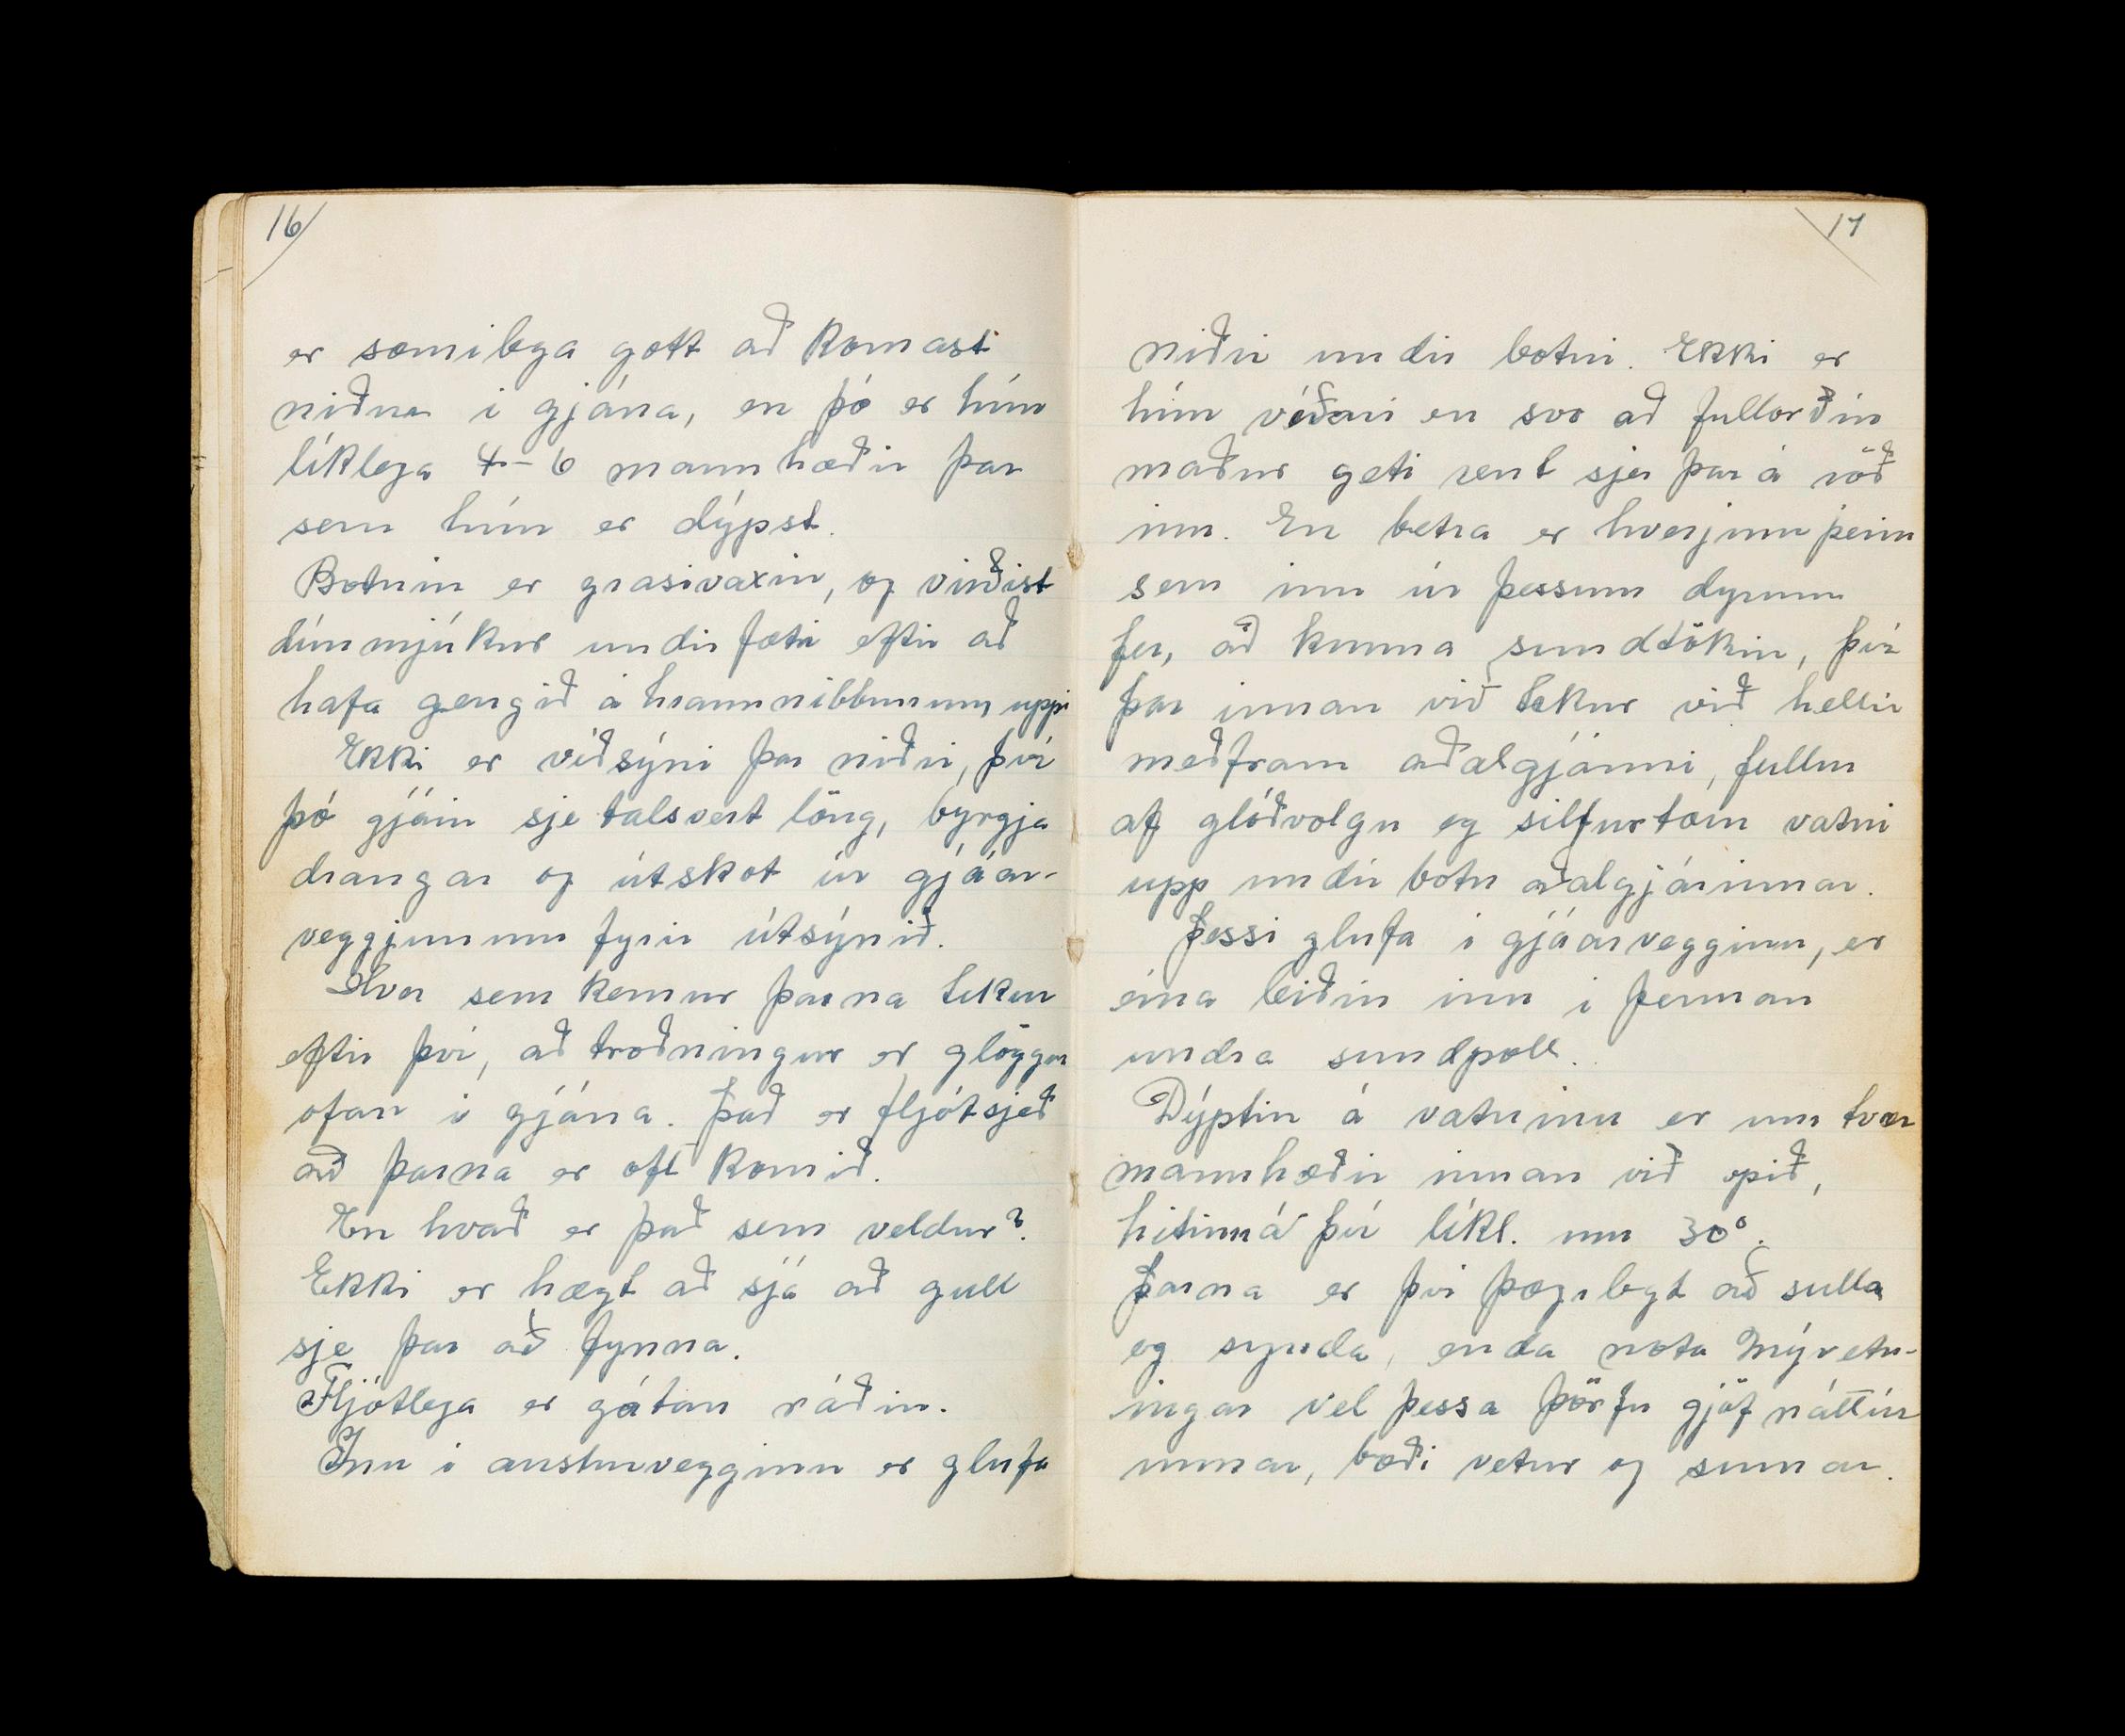 16
er sæmilega gott að komast
niður í gjána, en þó er hún
líklega 4-6 mannhæðir þar
sem hún er dýpst.
Botnin er grasivaxin, og virðist
dúnmjúkur undir fæti eftir að
hafa gengið á hraunnibbunum uppi
Ekki er víðsýni þar niðri, því
þó gjáin sje talsvert löng, byrgja
drangar og útskot úr gjáar-
veggjunum fyrir útsýnið.
Hver sem kemur þarna tekur
eftir því, að troðningur er glöggur
ofan í gjána. Það er fljótsjeð
að þarna er oft komið.
En hvað er það sem veldur?
Ekki er hægt að sjá að gull
sje þar að fynna.
Fljótlega er gátan ráðin.
Inn í austurvegginn er glufa
17
niðri undir botni. Ekki er
hún víðari en svo að fullorðin
maður geti rent sjer þar á röð
inn. En betra er hverjum þeim
sem inn úr þessum dyrum
fer, að kunna sundtökin, því
þar innan við tekur við hellir
meðfram aðalgjánni, fullur
af glóðvolgu og silfurtæru vatni
upp undir botn aðalgjárinnar.
Þessi glufa í gjáarvegginn, er
eina leiðin inn í þennan
undra sundpoll.
Dýptin á vatninu er um tvær
mannhæðir innan við opið,
hitinn á því líkl. um 30°.
Þarna er því þægilegt að sulla
og synda, enda nota Mývetn-
ingar vel þessa þörfu gjöf náttúr
unnar, bæði vetur og sumar.